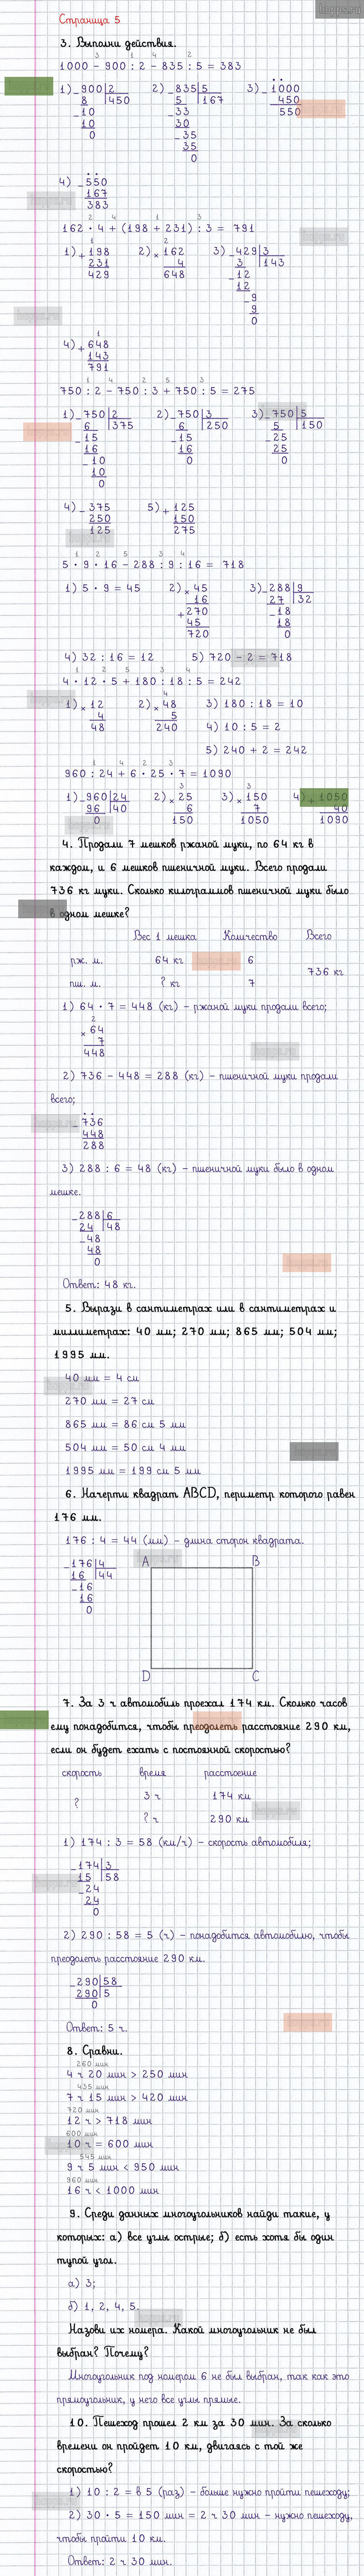 Страница 5
3. Выполни действия.
3 1 4 2
1000 - 900 : 2 - 835 : 5 = 383
1) - 900 | 2 2) - 835 | 5 3) - 1000
8 | 450 5 | 167 450
- 10 - 33 550
10 30
0 - 35
35
0
4) - 550
167
383
2 4 1 3
162 · 4 + (198 + 231) : 3 = 791
1) + 198 2) × 162 3) - 429 | 3
231 4 3 | 143
429 648 - 12
12
- 9
9
0
4) + 648
143
791
1 4 2 5 3
750 : 2 - 750 : 3 + 750 : 5 = 275
1) - 750 | 2 2) - 750 | 3 3) - 750 | 5
6 | 375 6 | 250 5 | 150
- 15 - 15 - 25
16 16 25
- 10 0 0
10
0
4) - 375 5) + 125
250 150
125 275
1 2 5 3 4
5 · 9 · 16 - 288 : 9 : 16 = 718
1) 5 · 9 = 45 2) × 45 3) - 288 | 9
16 27 | 32
+ 270 - 18
45 18
720 0
4) 32 : 16 = 12 5) 720 - 2 = 718
1 2 5 3 4
4 · 12 · 5 + 180 : 18 : 5 = 242
1) × 12 2) × 48 3) 180 : 18 = 10
4 5
48 240 4) 10 : 5 = 2
5) 240 + 2 = 242
1 4 2 3
960 : 24 + 6 · 25 · 7 = 1090
1) - 960 | 24 2) × 25 3) × 150 4) + 1050
96 | 40 6 7 40
0 150 1050 1090
4. Продали 7 мешков ржаной муки, по 64 кг в
каждом, и 6 мешков пшеничной муки. Всего продали
736 кг муки. Сколько килограммов пшеничной муки было
в одном мешке?
Вес 1 мешка Количество Всего
рж. м. 64 кг 6
736 кг
пш. м. ? кг 7
1) 64 · 7 = 448 (кг) - ржаной муки продали всего;
2
× 64
7
448
2) 736 - 448 = 288 (кг) - пшеничной муки продали
всего;
- 736
448
288
3) 288 : 6 = 48 (кг) - пшеничной муки было в одном
мешке.
- 288 | 6
24 | 48
- 48
48
0
Ответ: 48 кг.
5. Вырази в сантиметрах или в сантиметрах и
миллиметрах: 40 мм; 270 мм; 865 мм; 504 мм;
1995 мм.
40 мм = 4 см
270 мм = 27 см
865 мм = 86 см 5 мм
504 мм = 50 см 4 мм
1995 мм = 199 см 5 мм
6. Начерти квадрат ABCD, периметр которого равен
176 мм.
176 : 4 = 44 (мм) - длина сторон квадрата.
- 176 | 4
16 | 44
- 16
16
0
A B
D C
7. За 3 ч автомобиль проехал 174 км. Сколько часов
ему понадобится, чтобы преодолеть расстояние 290 км,
если он будет ехать с постоянной скоростью?
скорость время расстоение
3 ч 174 км
?
? ч 290 км
1) 174 : 3 = 58 (км/ч) - скорость автомобиля;
- 174 | 3
15 | 58
- 24
24
0
2) 290 : 58 = 5 (ч) - понадобится автомобилю, чтобы
преодолеть расстояние 290 км.
- 290 | 58
290 | 5
0
Ответ: 5 ч.
8. Сравни.
260 мин
4 ч 20 мин > 250 мин
435 мин
7 ч 15 мин > 420 мин
720 мин
12 ч > 718 мин
600 мин
10 ч = 600 мин
545 мин
9 ч 5 мин < 950 мин
960 мин
16 ч < 1000 мин
9. Среди данных многоугольников найди такие, у
которых: а) все углы острые; б) есть хотя бы один
тупой угол.
а) 3;
б) 1, 2, 4, 5.
Назови их номера. Какой многоугольник не был
выбран? Почему?
Многоугольник под номером 6 не был выбран, так как это
прямоугольник, у него все углы прямые.
10. Пешеход прошел 2 км за 30 мин. За сколько
времени он пройдет 10 км, двигаясь с той же
скоростью?
1) 10 : 2 = в 5 (раз) - больше нужно пройти пешеходу;
2) 30 · 5 = 150 мин = 2 ч 30 мин - нужно пешеходу,
чтобы пройти 10 км.
Ответ: 2 ч 30 мин.